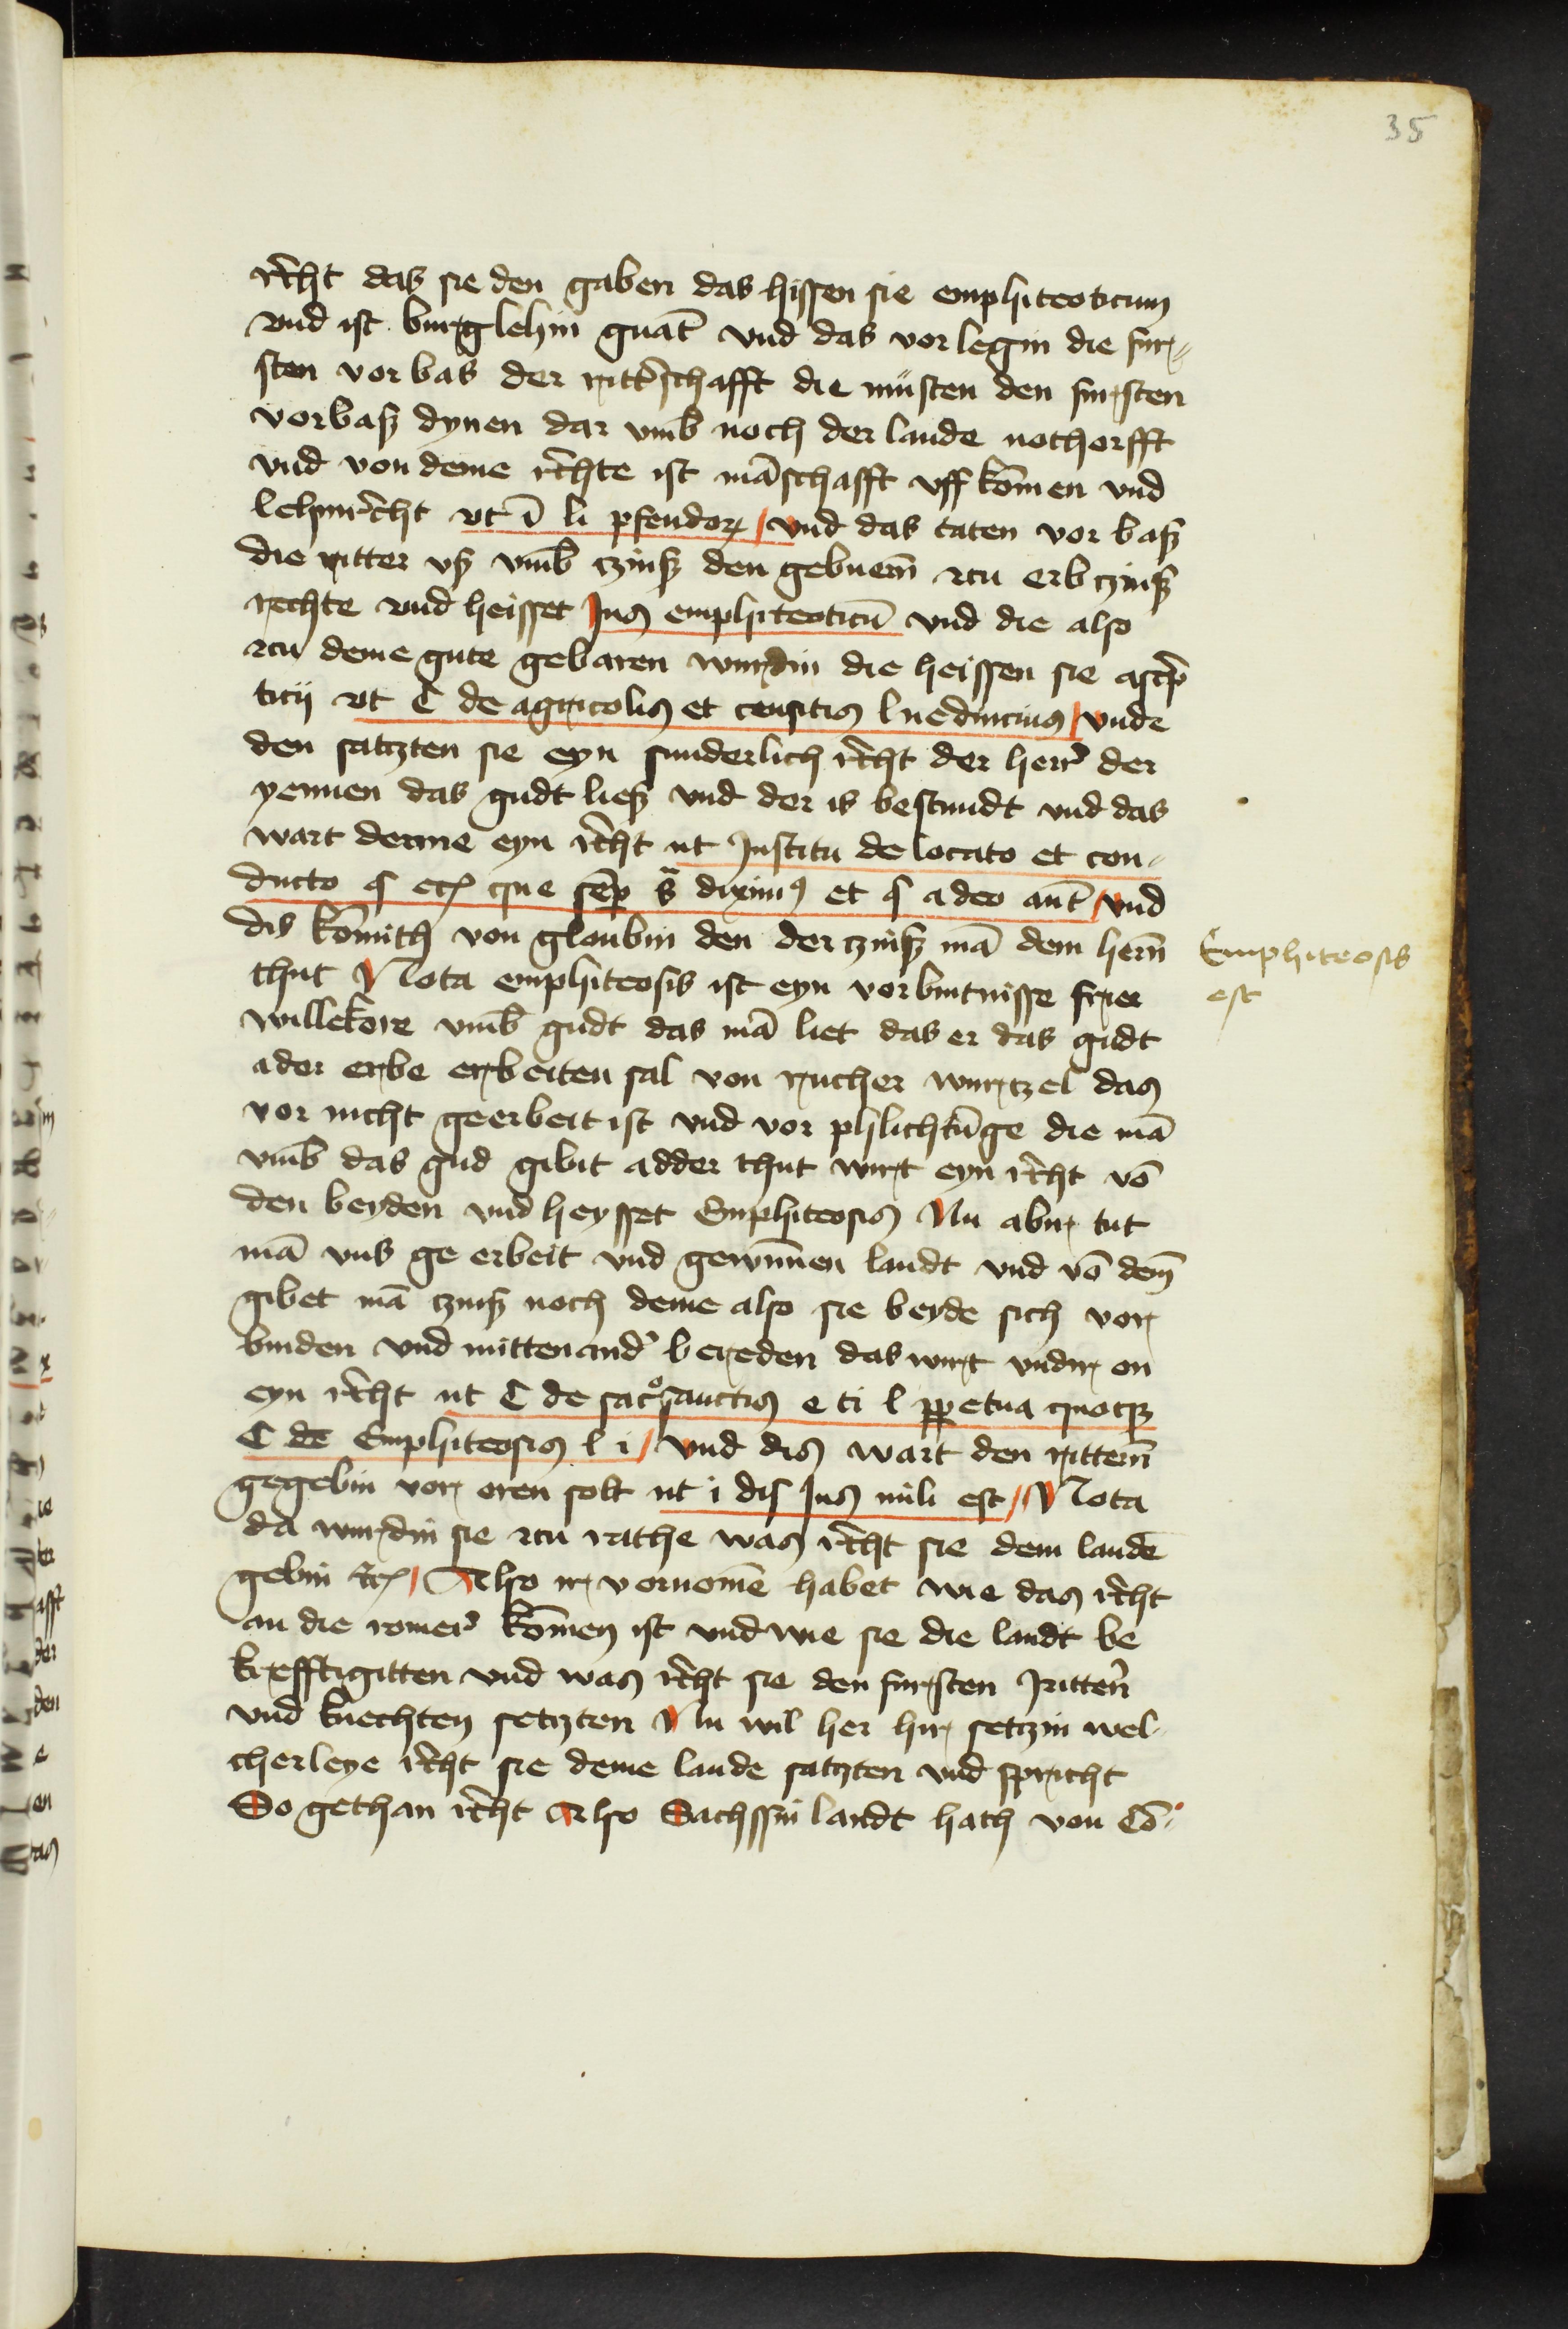 35
rc̄ht das sie den gaben das hissen sie emphiteoticum
vnd ist burglehin gnāt vnd das vor legin die fur-
sten vor bas der ritt̄schafft die müsten den fursten
vorbaß dynen dar vmb̄ noch der lande nothorfft
vnd von deme rc̄hte ist māschafft vff kōmen vnd
lehinrc̄ht vt ī li pfeudor vnd das taten vor baß
die ritter vß vmb̄ czinß den gebuern̄ zcu erbczinß
rechte vnd heisset Jus emphiteoticū vnd die also
zcu deme gute gebaren wurdin die heissen sie ascp̄
ticij vt C de agricolis et censitis l vnde
den satczten sie eyn sunderlich rc̄ht der herr̄ der
yennen das gudt ließ vnd der is bestundt vnd das
wart denne eyn rc̄ht ut Institu de locato et con-
ducto que sēp diximꝰ et adeo aūt vnd
dis kōmith von gloubin den der czinß mā dem hern̄
thut Nota emphiteosis ist eyn vorbintnisse frier
willekore vmb̄ gudt das mā liet das er das gudt
ader erbe erbeiten sal von rucher wurtzel das
vor nicht geerbeit ist vnd vor phlichtūge die mā
vmb̄ das gud gibit adder thut wirt eyn rc̄ht vō
den beyden vnd heysset Emphiteosis Nu abir tut
mā vns ge erbeit vnd gewūnen landt vnd vō dem̄
gibet mā czinß noch deme also sie beyde sich vor
binden vnd mittenand̄ bereden das wirt vndir en
eyn rc̄ht ut C de sac̊sanctis e ti l ꝑpetua quoqꝫ
C de Emphiteosis l i vnd dis wart den rittern̄
gegebin vor eren solt ut i dis Jus mili est Nota
da wurdin sie zcu rathe was rc̄ht sie dem lande
gebin Also ir vornomē habet wie das rc̄ht
an die romer̄ kōmen ist vnd wie sie die landt be
krefftigitten vnd was rc̄ht sie den fursten rittern̄
vnd knechten setczten Nu wil her hir setczin wel-
cherleye rc̄ht sie deme lande satczten vnd spricht
So gethan rc̄ht Also Sachssin landt hath von Cō-
Emphiteosis
est